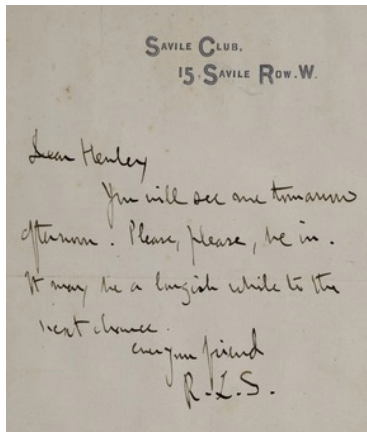 SAVILE CLUB.
15 SAVILE ROW. W.
Dear Henley
You will see me tomorrow
afternoon. Please, please, be in.
It may be a largish while to the
next chance.
ever your friend
R.L.S.